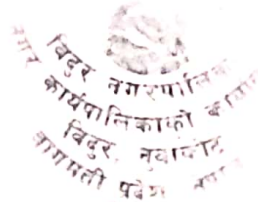 विदुर नगरपालिका
नगर कार्यपालिकाको कार्यालय
विदुर, नुवाकोट
बागमती प्रदेश, नेपाल